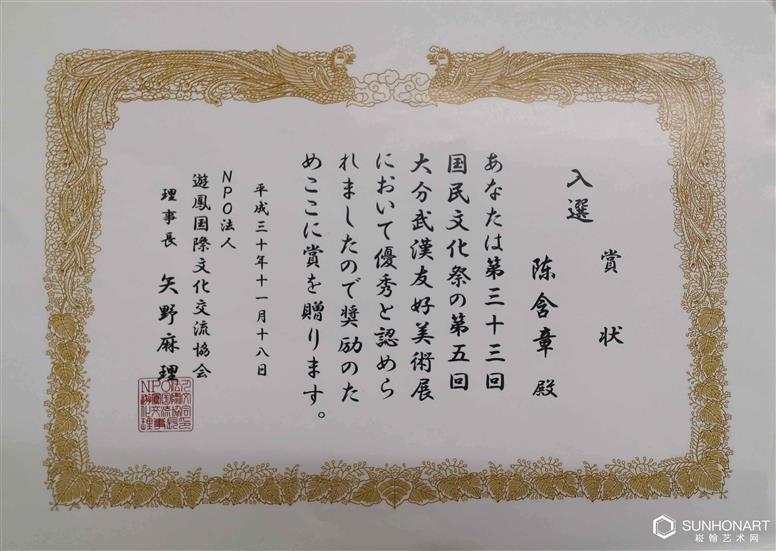 賞状
入選
陈含章 殿
あなたは第三十三回
国民文化祭の第五回
大分武漢友好美術展
において優秀と認めら
れましたので奨励のた
めここに賞を贈ります。
平成三十年十一月十八日
NPO法人
遊鳳国際文化交流協会
理事長 矢野麻理
SUNHONART
崧翰艺术网